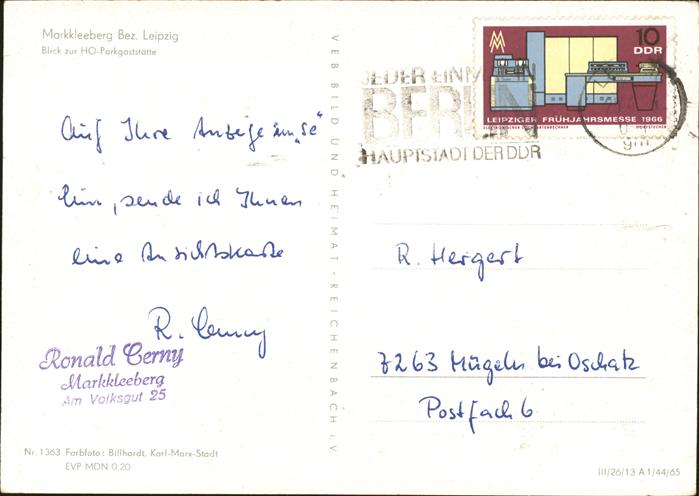 Markkleeberg Bez. Leipzig
Blick zur HO-Parkgaststätte
Auf Ihre Anzeige im „Se"
hin, sende ich Ihnen
eine Ansichtskarte
R. Cerny
Ronald Cerny
Markkleeberg
Am Volksgut 25
Nr. 1363 Farbfoto: Billhardt, Karl-Marx-Stadt
EVP MDN 0,20
VEB BILD UND HEIMAT · REICHENBACH i. V.
JEDER EINMAL IN
BERLIN
HAUPTSTADT DER DDR
10
DDR
LEIPZIGER FRÜHJAHRSMESSE 1966
R. Hergert
7263 Mügeln bei Oschatz
Postfach 6
III/26/13 A 1/44/65